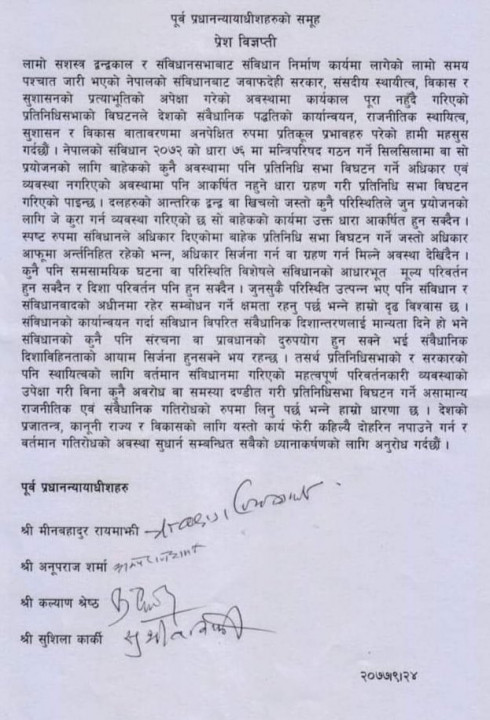 पूर्व प्रधानन्यायाधीशहरुको समूह
प्रेश विज्ञप्ती
लामो सशस्त्र द्वन्द्वकाल र संविधानसभाबाट संविधान निर्माण कार्यमा लागेको लामो समय
पश्चात जारी भएको नेपालको संविधानबाट जवाफदेही सरकार, संसदीय स्थायीत्व, विकास र
सुशासनको प्रत्याभूतिको अपेक्षा गरेको अवस्थामा कार्यकाल पूरा नहुँदै गरिएको
प्रतिनिधिसभाको विघटनले देशको संवैधानिक पद्धतिको कार्यन्वयन, राजनीतिक स्थायित्व,
सुशासन र विकास वातावरणमा अनपेक्षित रुपमा प्रतिकूल प्रभावहरु परेको हामी महसुस
गर्दछौं । नेपालको संविधान २०७२ को धारा ७६ मा मन्त्रिपरिषद गठन गर्ने सिलसिलामा वा सो
प्रयोजनको लागि बाहेकको कुनै अवस्थामा पनि प्रतिनिधि सभा विघटन गर्ने अधिकार एवं
व्यवस्था नगरिएको अवस्थामा पनि आकर्षित नहुने धारा ग्रहण गरी प्रतिनिधि सभा विघटन
गरिएको पाइन्छ । दलहरुको आन्तरिक द्वन्द्व वा खिचलो जस्तो कुनै परिस्थितिले जुन प्रयोजनको
लागि जे कुरा गर्न व्यवस्था गरिएको छ सो बाहेकको कार्यमा उक्त धारा आकर्षित हुन सक्दैन ।
स्पष्ट रुपमा संविधानले अधिकार दिएकोमा बाहेक प्रतिनिधि सभा विघटन गर्ने जस्तो अधिकार
आफूमा अर्न्तनिहित रहेको भन्न, अधिकार सिर्जना गर्न वा ग्रहण गर्न मिल्ने अवस्था देखिदैन ।
कुनै पनि समसामयिक घटना वा परिस्थिति विशेषले संविधानको आधारभूत मूल्य परिवर्तन
हुन सक्दैन र दिशा परिवर्तन पनि हुन सक्दैन । जुनसुकै परिस्थिति उत्पन्न भए पनि संविधान र
संविधानवादको अधीनमा रहेर सम्बोधन गर्ने क्षमता रहनु पर्छ भन्ने हाम्रो दृढ विश्वास छ ।
संविधानको कार्यान्वयन गर्दा संविधान विपरित संवैधानिक दिशान्तरणलाई मान्यता दिने हो भने
संविधानको कुनै पनि संरचना वा प्रावधानको दुरुपयोग हुन सक्ने भई संवैधानिक
दिशाविहिनताको आयाम सिर्जना हुनसक्ने भय रहन्छ । तसर्थ प्रतिनिधिसभाको र सरकारको
पनि स्थायित्वको लागि वर्तमान संविधानमा गरिएको महत्वपूर्ण परिवर्तनकारी व्यवस्थाको
उपेक्षा गरी बिना कुनै अवरोध वा समस्या दण्डीत गरी प्रतिनिधिसभा विघटन गर्ने असामान्य
राजनीतिक एवं संवैधानिक गतिरोधको रुपमा लिनु पर्छ भन्ने हाम्रो धारणा छ । देशको
प्रजातन्त्र, कानूनी राज्य र विकासको लागि यस्तो कार्य फेरी कहिल्यै दोहरिन नपाउने गर्न र
वर्तमान गतिरोधको अवस्था सुधार्न सम्बन्धित सबैको ध्यानाकर्षणको लागि अनुरोध गर्दछौं ।
पूर्व प्रधानन्यायाधीशहरु
श्री मीनबहादुर रायमाझी
श्री अनूपराज शर्मा
श्री कल्याण श्रेष्ठ
श्री सुशिला कार्की
२०७७।९।२४